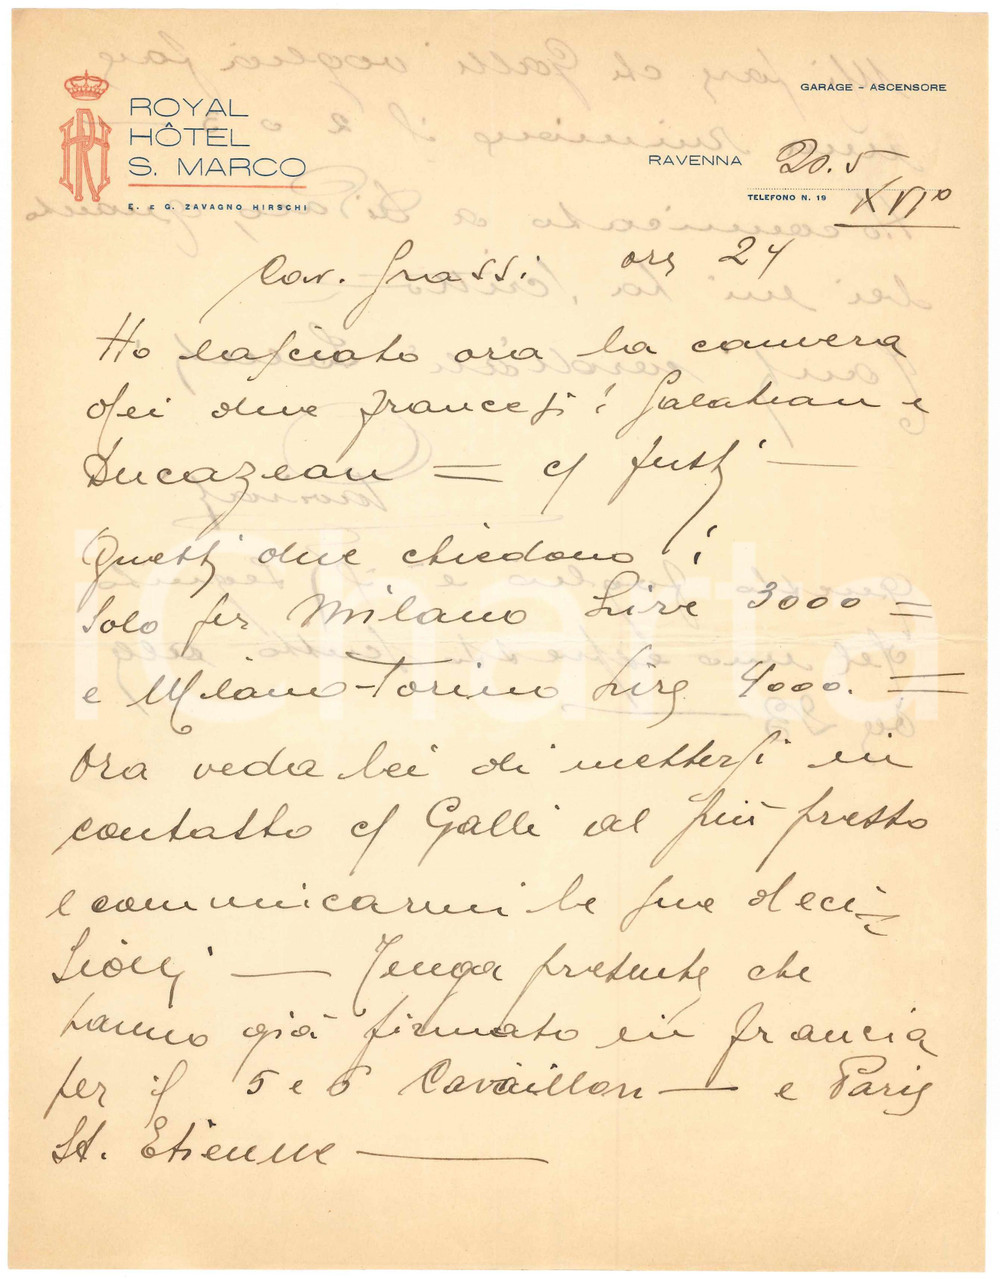 GARAGE - ASCENSORE
ROYAL
HÔTEL
S. MARCO
E. e G. ZAVAGNO HIRSCHI
RAVENNA 20.5
TELEFONO N. 19 XVI°
Cav. Grassi ore 24
Ho lasciato ora la camera
dei due francesi: Galateau e
Ducazeau = c/ Justi —
Questi due chiedono:
Solo per Milano Lire 3000 =
e Milano-Torino Lire 4000. =
Ora veda lei di mettersi in
contatto c/ Galli al più presto
e comunicarmi le sue deci=
sioni — Tenga presente che
hanno già firmato in francia
per il 5 e 6 Cavaillon — e Paris
St. Etienne —
iCharta